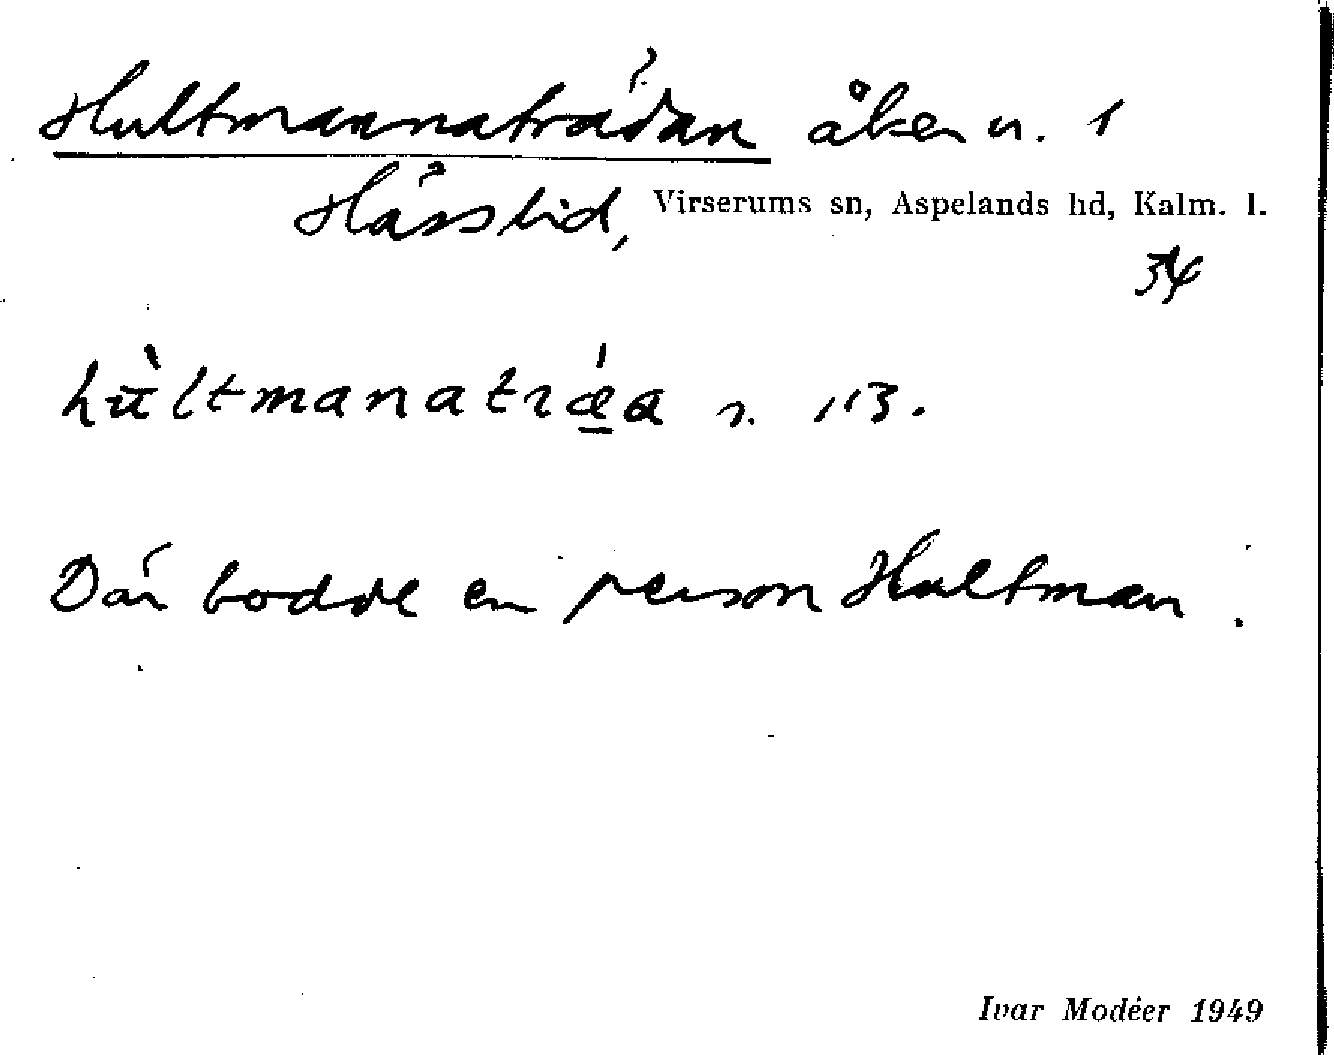 Hultmannaträdan åker n. 1
Hässlid, Virserums sn, Aspelands hd, Kalm. l.
34
hùltmanatrǽa
Där bodde en person Hultman.
Ivar Modéer 1949